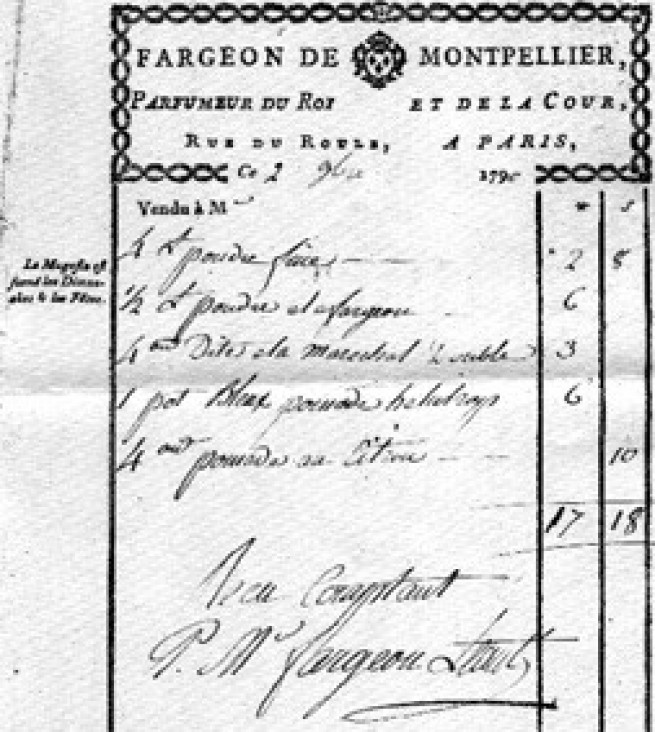 FARGEON DE MONTPELLIER,
PARFUMEUR DU ROI ET DE LA COUR,
RUE DU ROULE, A PARIS,
Ce 2 9bre 179
Vendu à M
Le Magasin est
fermé les Diman-
ches & les Fêtes.
₶ s
4 ℔ poudre fine 2 8
½ ℔ poudre a la fargeon 6
4 onc Dite a la marechal double 3
1 pot Bleux pomade heliotrop 6
4 onc pomade au Citron 10
17 18
Recu Comptant
P. Mr fargeon